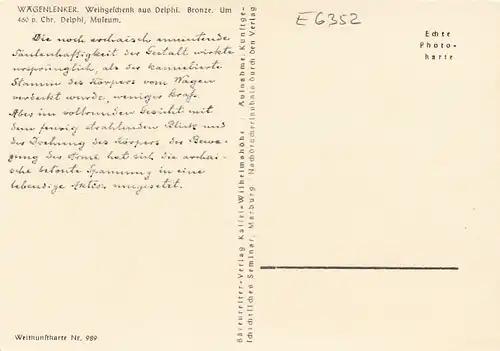 WAGENLENKER. Weihgeschenk aus Delphi. Bronze. Um
460 v. Chr. Delphi, Museum.
Die noch archaisch anmutende
Säulenhaftigkeit der Gestalt wirkte
ursprünglich, als der kannelierte
Stamm des Körpers vom Wagen
verdeckt wurde, weniger krass.
Aber im vollrunden Gesicht mit
dem feurig strahlenden Blick und
der Drehung des Körpers der Bewe-
gung der Arme hat sich die archai-
sche betonte Spannung in eine
lebendige Aktion umgesetzt.
Weltkunstkarte Nr. 989
Bärenreiter-Verlag Kassel-Wilhelmshöhe / Aufnahme: Kunstge-
schichtliches Seminar, Marburg / Nachbrucherlaubnis durch den Verlag
E 6352
Echte
Photo-
karte